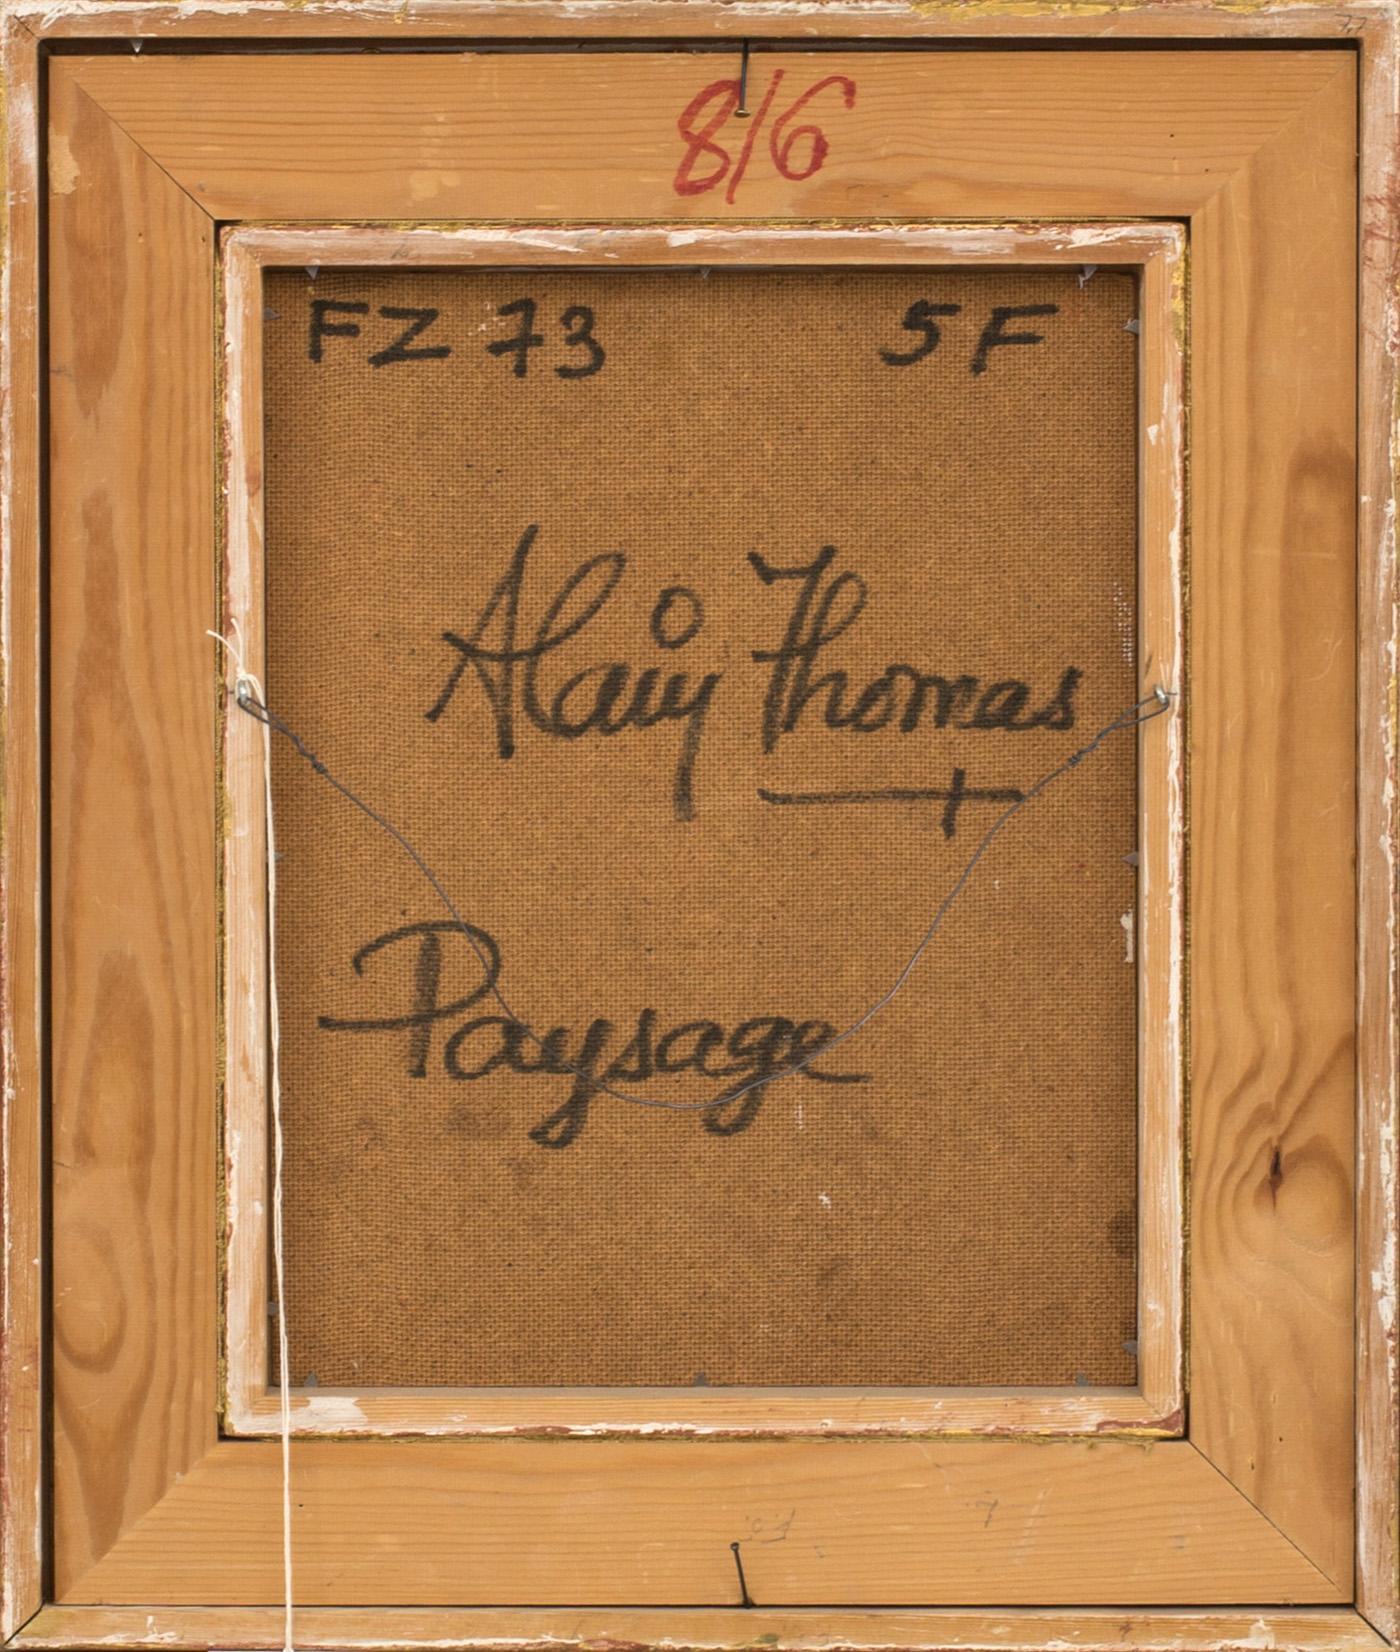 8/6
FZ 73 5F
Alain Thomas
Paysage